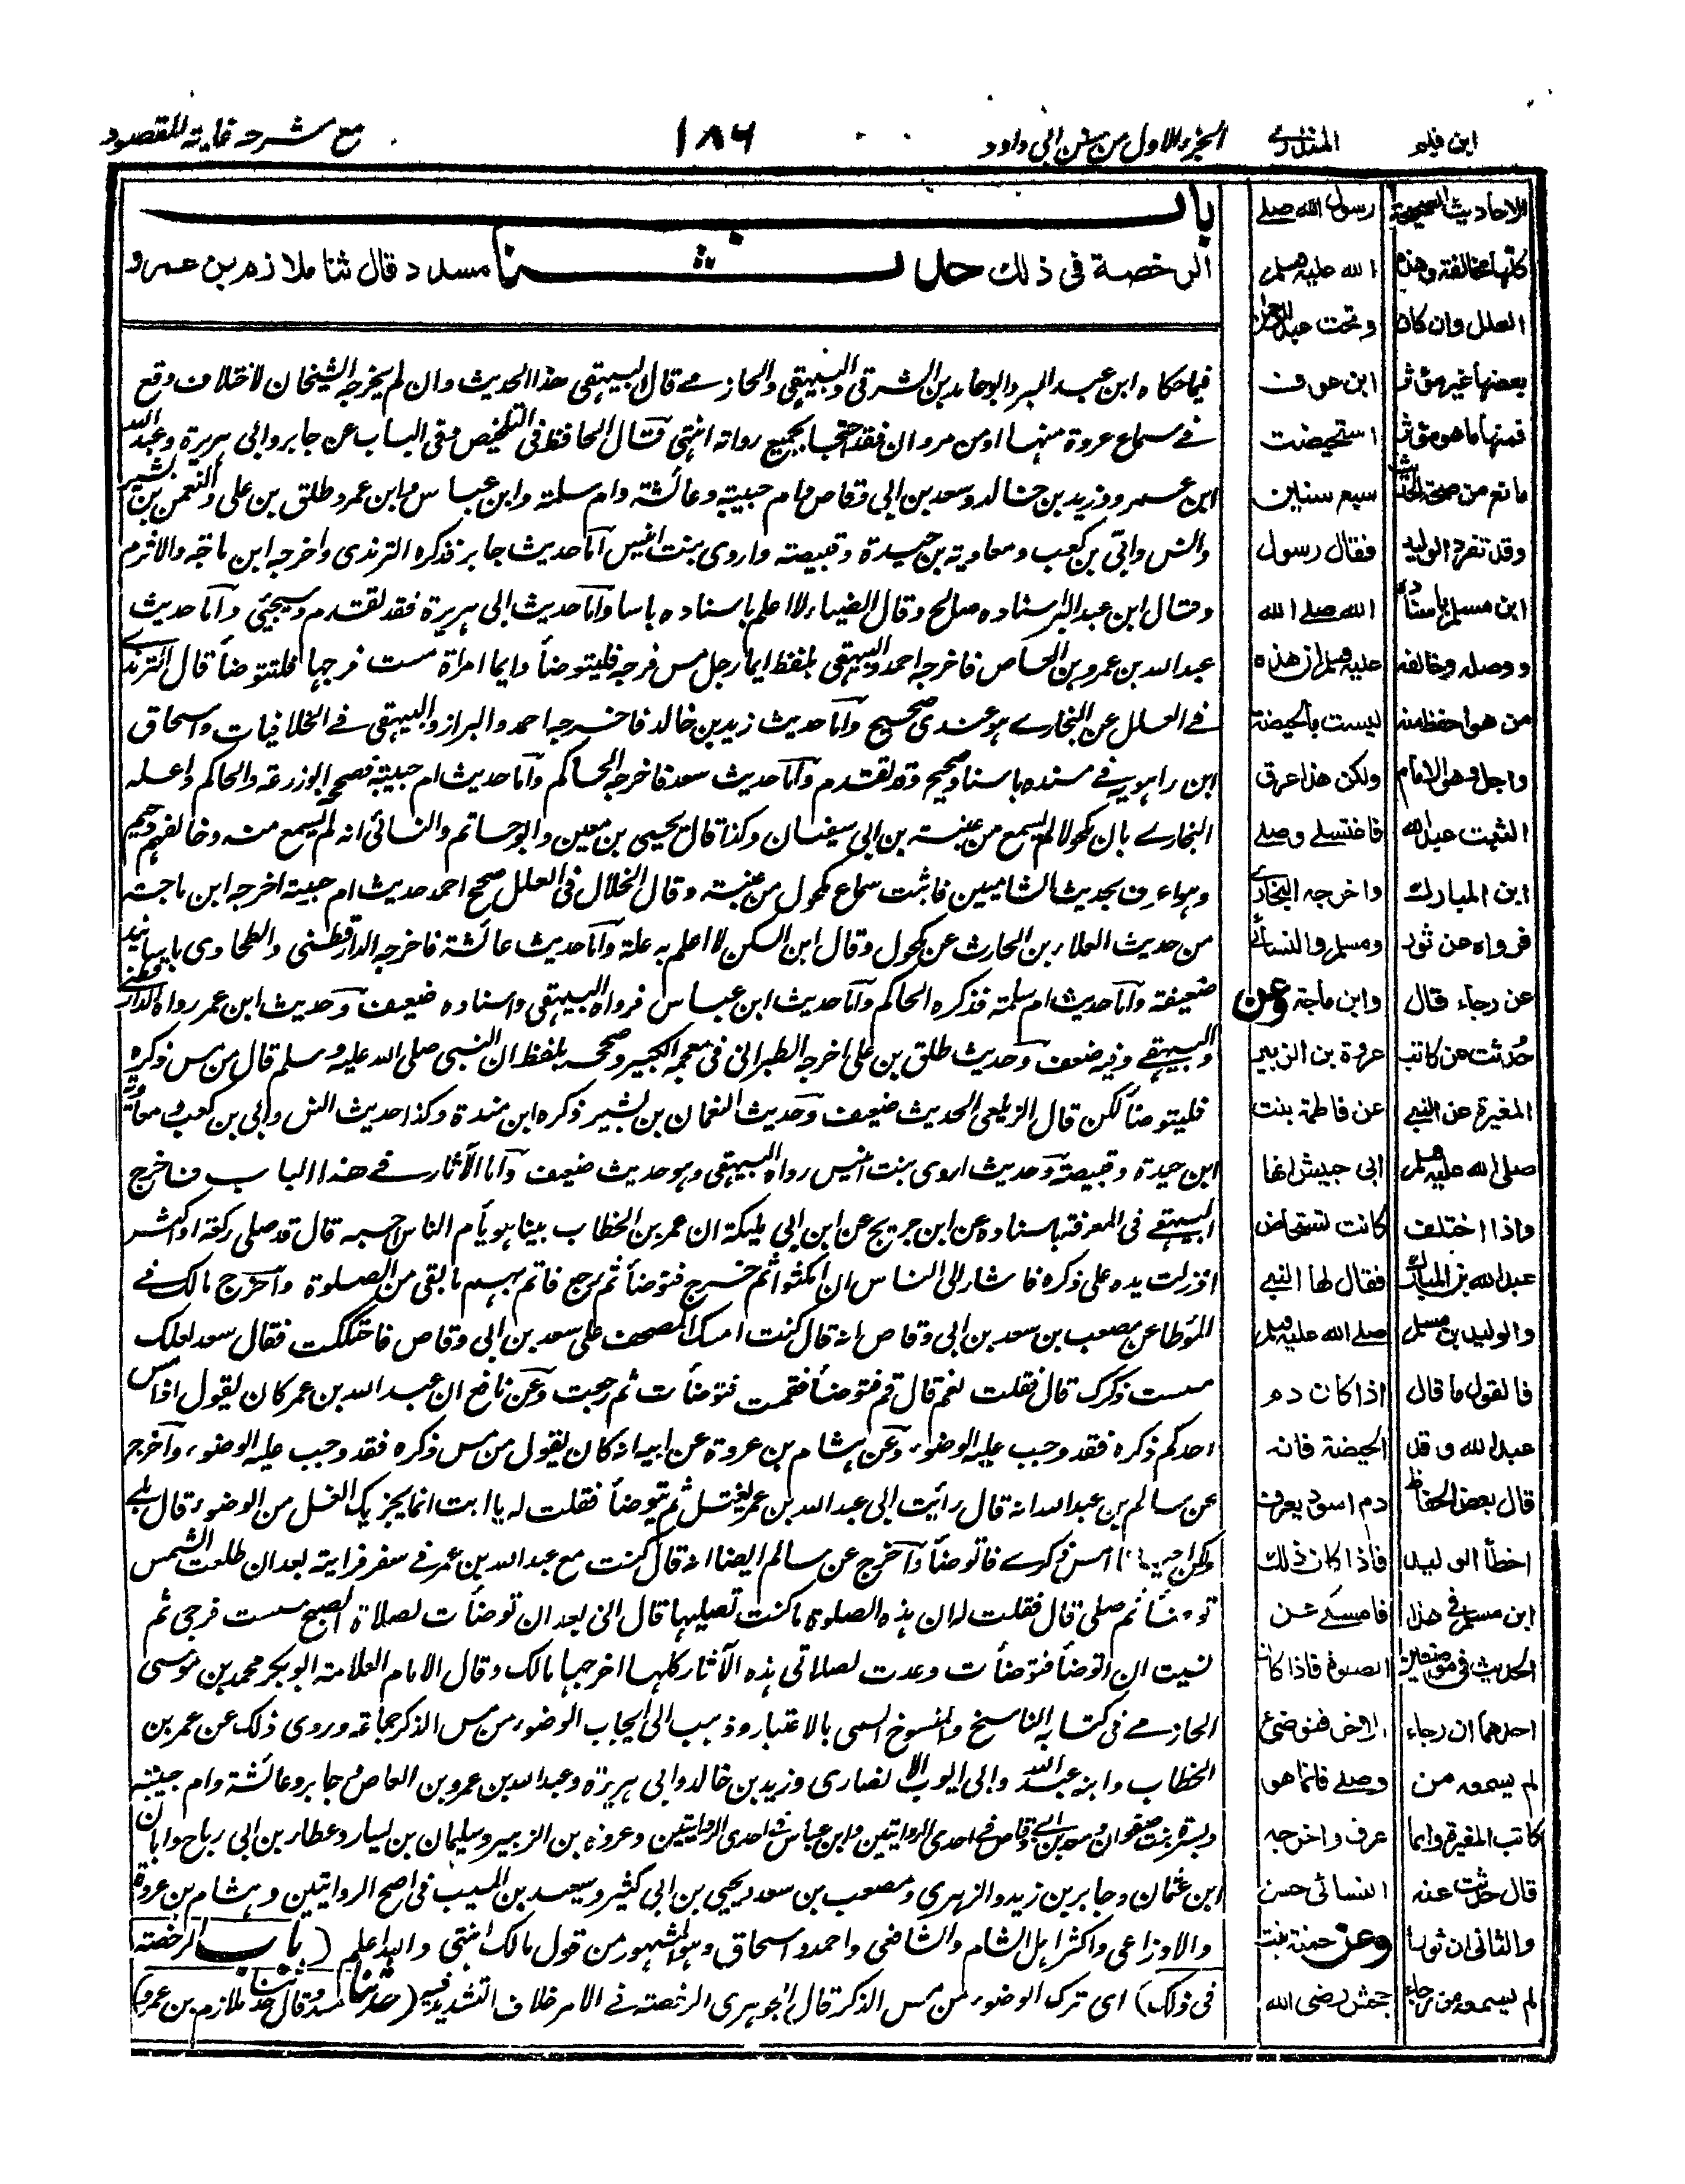 ابن قيم
المنذري
الجزء الاول من سنن ابي داود
١٨٦
مع شرحه غاية المقصود
باب
الرخصة في ذلك حدثنا مسدد قال ثنا ملازم بن عمرو
فيما حكاه ابن عبد البر وابو حامد بن الشرقي والبيهقي والحازمي قال البيهقي هذا الحديث وان لم يخرجه الشيخان لاختلاف وقع
في سماع عروة منها او من مروان فقد احتجا بجميع رواته انتهى قال الحافظ في التلخيص وفي الباب عن جابر وابي هريرة وعبد الله
ابن عمرو وزيد بن خالد وسعد بن ابي وقاص وام حبيبة وعائشة وام سلمة وابن عباس وابن عمر وطلق بن علي والنعمن بن بشير
وانس وابي بن كعب ومعاوية بن حيدة وقبيصة واروى بنت انيس اما حديث جابر فذكره الترمذي واخرجه ابن ماجه والاثرم
وقال ابن عبد البر اسناده صالح وقال الضياء لا اعلم باسناده باسا واما حديث ابي هريرة فقد تقدم وسيجيئ واما حديث
عبد الله بن عمرو بن العاص فاخرجه احمد والبيهقي بلفظ ايما رجل مس فرجه فليتوضأ وايما امرأة مست فرجها فلتتوضأ قال الترمذي
في العلل عن البخاري هو عندي صحيح واما حديث زيد بن خالد فاخرجه احمد والبزار والبيهقي في الخلافيات واسحاق
ابن راهويه في مسنده باسناد صحيح وقد تقدم واما حديث سعد فاخرجه الحاكم واما حديث ام حبيبة فصححه ابو زرعة والحاكم واعله
البخاري بان مكحولا لم يسمع من عنبسة بن ابي سفيان وكذا قال يحيى بن معين وابو حاتم والنسائي انه لم يسمع منه وخالفهم دحيم
وهو اعرف بحديث الشاميين فاثبت سماع مكحول من عنبسة وقال الخلال في العلل صحح احمد حديث ام حبيبة اخرجه ابن ماجة
من حديث العلاء بن الحارث عن مكحول وقال ابن السكن لا اعلم به علة واما حديث عائشة فاخرجه الدارقطني والطحاوي باسانيد
ضعيفة واما حديث ام سلمة فذكره الحاكم واما حديث ابن عباس فرواه البيهقي واسناده ضعيف وحديث ابن عمر رواه الدارقطني
والبيهقي وفيه ضعف وحديث طلق بن علي اخرجه الطبراني في معجمه الكبير وصححه بلفظ ان النبي صلى الله عليه وسلم قال من مس ذكره
فليتوضأ لكن قال الزيلعي الحديث ضعيف وحديث النعمان بن بشير ذكره ابن مندة وكذا حديث انس وابي بن كعب ومعاوية
ابن حيدة وقبيصة وحديث اروى بنت انيس رواه البيهقي وهو حديث ضعيف واما الآثار في هذا الباب فاخرج
البيهقي في المعرفة باسناده عن ابن جريج عن ابن ابي مليكة ان عمر بن الخطاب بينا هو يأم الناس احسبه قال قد صلى ركعة او اكثر
اذ زلت يده على ذكره فاشار الى الناس ان امكثوا ثم خرج فتوضأ ثم رجع فاتم بهم ما بقي من الصلوة واخرج مالك في
الموطا عن مصعب بن سعد بن ابي وقاص انه قال كنت امسك المصحف على سعد بن ابي وقاص فاحتككت فقال سعد لعلك
مسست ذكرك قال فقلت نعم قال قم فتوضأ فقمت فتوضأت ثم رجعت وعن نافع ان عبد الله بن عمر كان يقول اذا مس
احدكم ذكره فقد وجب عليه الوضوء وعن هشام بن عروة عن ابيه انه كان يقول من مس ذكره فقد وجب عليه الوضوء واخرج
عن سالم بن عبد الله انه قال رأيت ابي عبد الله بن عمر يغتسل ثم يتوضأ فقلت له يا ابت اما يجزيك الغسل من الوضوء قال بلى
ولكن احيانا امس ذكري فاتوضأ واخرج عن سالم ايضا انه قال كنت مع عبد الله بن عمر في سفر فرايته بعد ان طلعت الشمس
توضأ ثم صلى قال فقلت له ان هذه الصلوة ما كنت تصليها قال اني بعد ان توضأت لصلاة الصبح مسست فرجي ثم
نسيت ان اتوضأ فتوضأت وعدت لصلاتي هذه الآثار كلها اخرجها مالك وقال الامام العلامة ابو بكر محمد بن موسى
الحازمي في كتابه الناسخ والمنسوخ المسمى بالاعتبار وذهب الى ايجاب الوضوء من مس الذكر جماعة وروى ذلك عن عمر بن
الخطاب وابنه عبد الله وابي ايوب الانصاري وزيد بن خالد وابي هريرة وعبد الله بن عمرو بن العاص وجابر وعائشة وام حبيبة
وبسرة بنت صفوان وسعد بن ابي وقاص في احدى الروايتين وابن عباس في احدى الروايتين وعروة بن الزبير وسليمان بن يسار وعطاء بن ابي رباح وابان
ابن عثمان وجابر بن زيد والزهري ومصعب بن سعد ويحيى بن ابي كثير وسعيد بن المسيب في اصح الروايتين وهشام بن عروة
والاوزاعي واكثر اهل الشام والشافعي واحمد واسحاق وهو المشهور من قول مالك انتهى والله اعلم (باب الرخصة
في ذلك) اي ترك الوضوء من مس الذكر قال الجوهري الرخصة في الامر خلاف التشديد فيه (حدثنا مسدد قال حدثنا ملازم بن عمرو)
رسول الله صلى
الله عليه وسلم
وتحت عبد الرحمن
ابن عوف
استحيضت
سبع سنين
فقال رسول
الله صلى الله
عليه وسلم ان هذه
ليست بالحيضة
ولكن هذا عرق
فاغتسلي وصلي
واخرجه البخاري
ومسلم والنسائي
وابن ماجة وعن
عروة بن الزبير
عن فاطمة بنت
ابي حبيش انها
كانت تستحاض
فقال لها النبي
صلى الله عليه وسلم
اذا كان دم
الحيضة فانه
دم اسود يعرف
فاذا كان ذلك
فامسكي عن
الصلوة فاذا كان
الاخر فتوضئ
وصلي فانما هو
عرق واخرجه
النسائي حسن
وعن حمنة بنت
جحش رضي الله
الاحاديث الصحيحة
كلها مخالفة وهذه
العلل وان كان
بعضها غير مؤثر
فمنها ما هو مؤثر
مانع من صحة الحديث
وقد تفرد الوليد
ابن مسلم باسناده
ووصله وخالفه
من هو احفظ منه
واجل وهو الامام
الثبت عبد الله
ابن المبارك
فرواه عن ثور
عن رجاء قال
حدثت عن كاتب
المغيرة عن النبي
صلى الله عليه وسلم
واذا اختلف
عبد الله بن المبارك
والوليد بن مسلم
فالقول ما قال
عبد الله وقد
قال بعض الحفاظ
اخطأ الوليد
ابن مسلم في هذا
الحديث في موضعين
احدهما ان رجاء
لم يسمعه من
كاتب المغيرة وانما
قال حدثت عنه
والثاني ان ثورا
لم يسمعه من رجاء